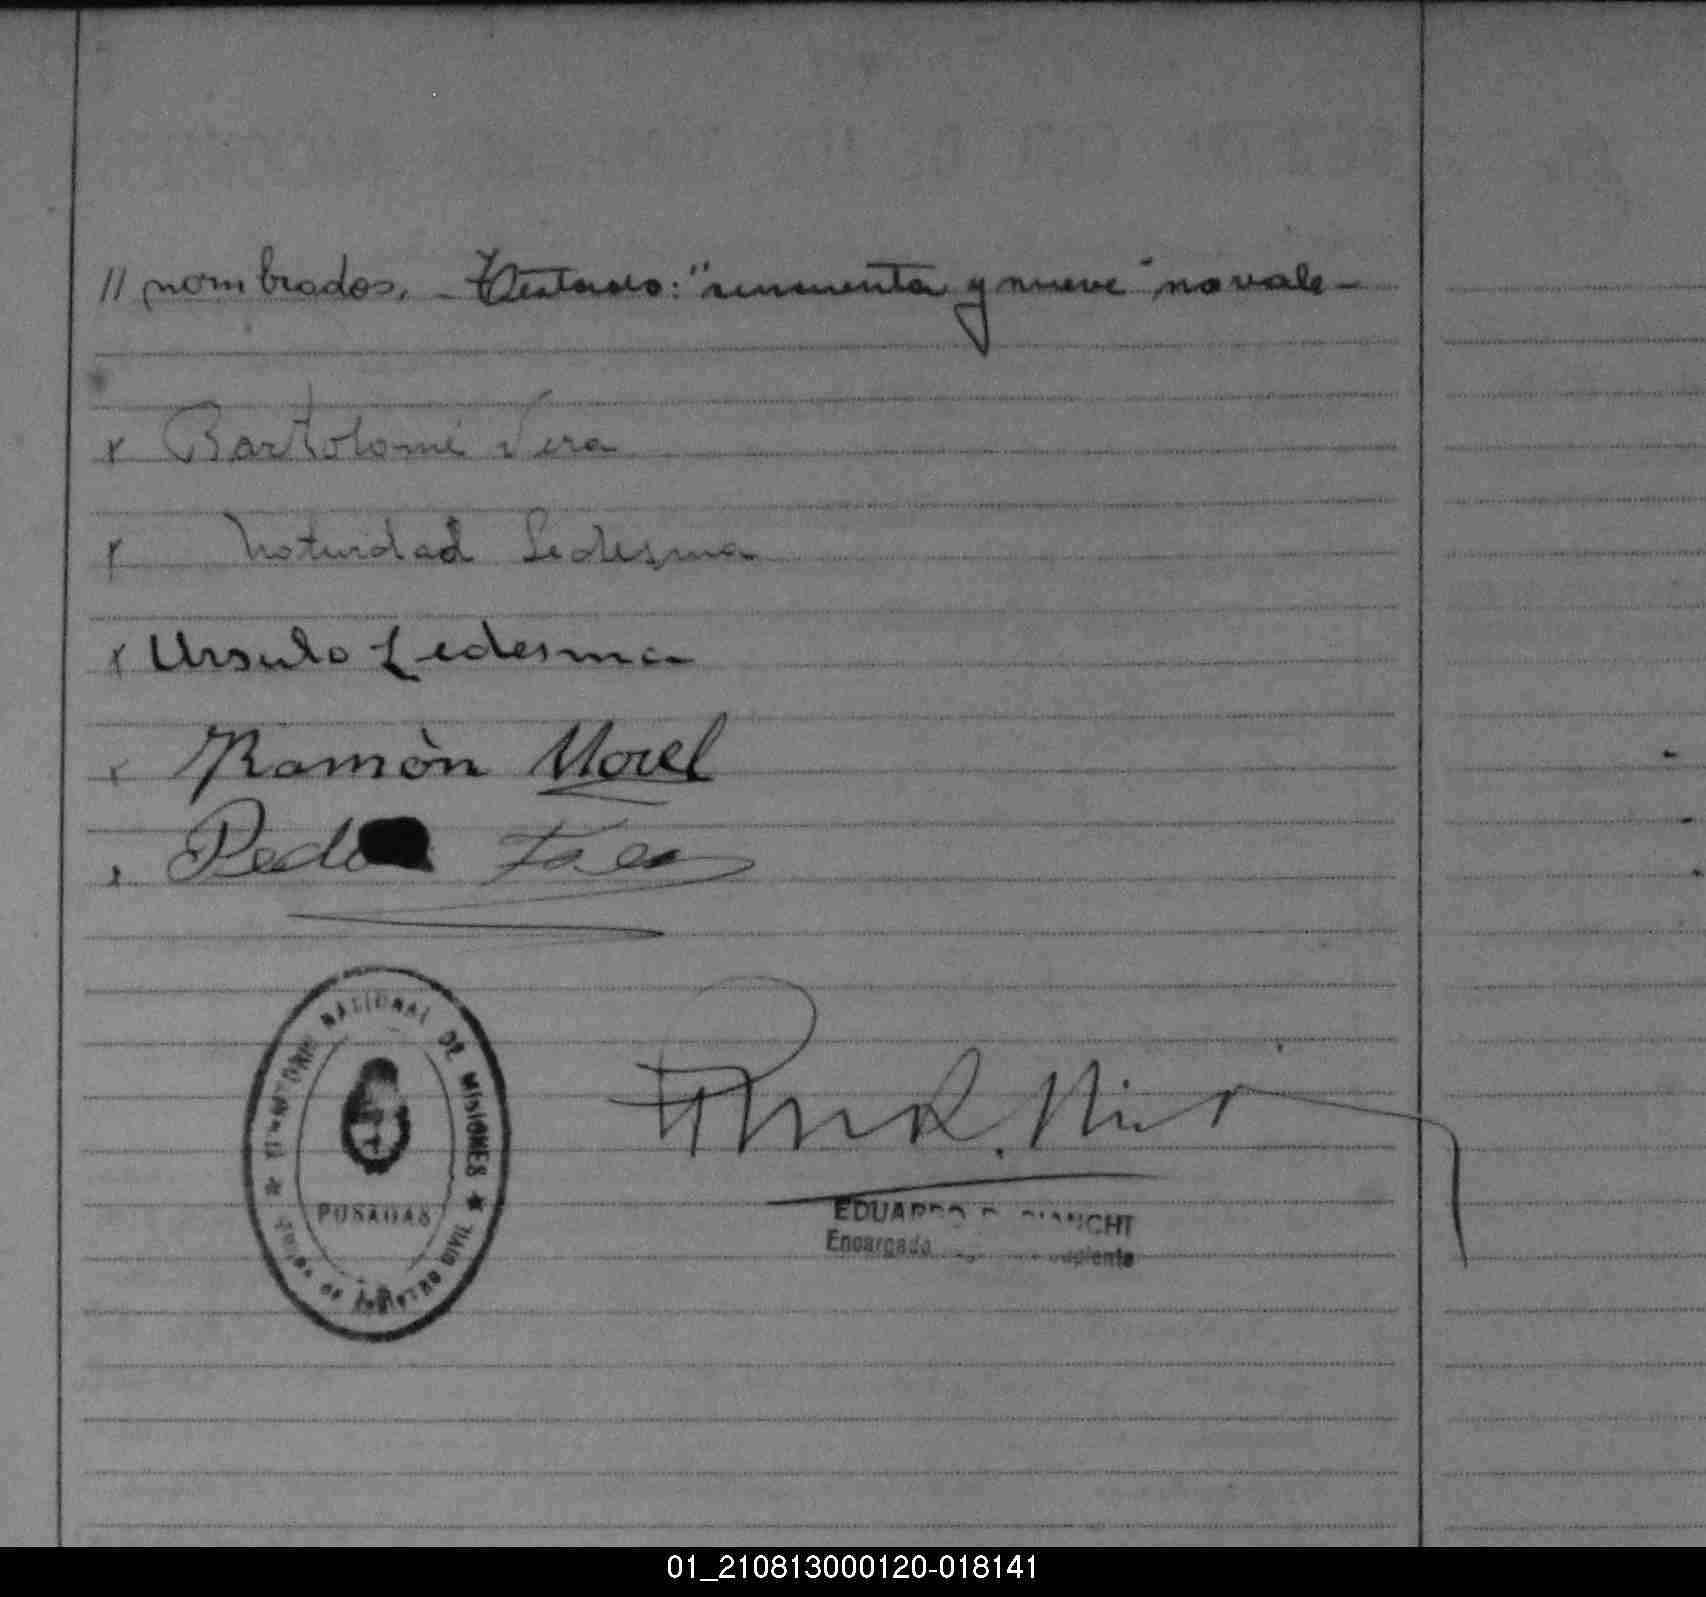 // nombrados. - Testado: "cincuenta y nueve" no vale -
x Bartolomé Vera
x Natividad Ledesma
x Ursulo Ledesma
x Ramòn Morel
x
TERRITORIO NACIONAL DE MISIONES
POSADAS
REGISTRO CIVIL
EDUARDO BIANCHI
Encargado
01_210813000120-018141